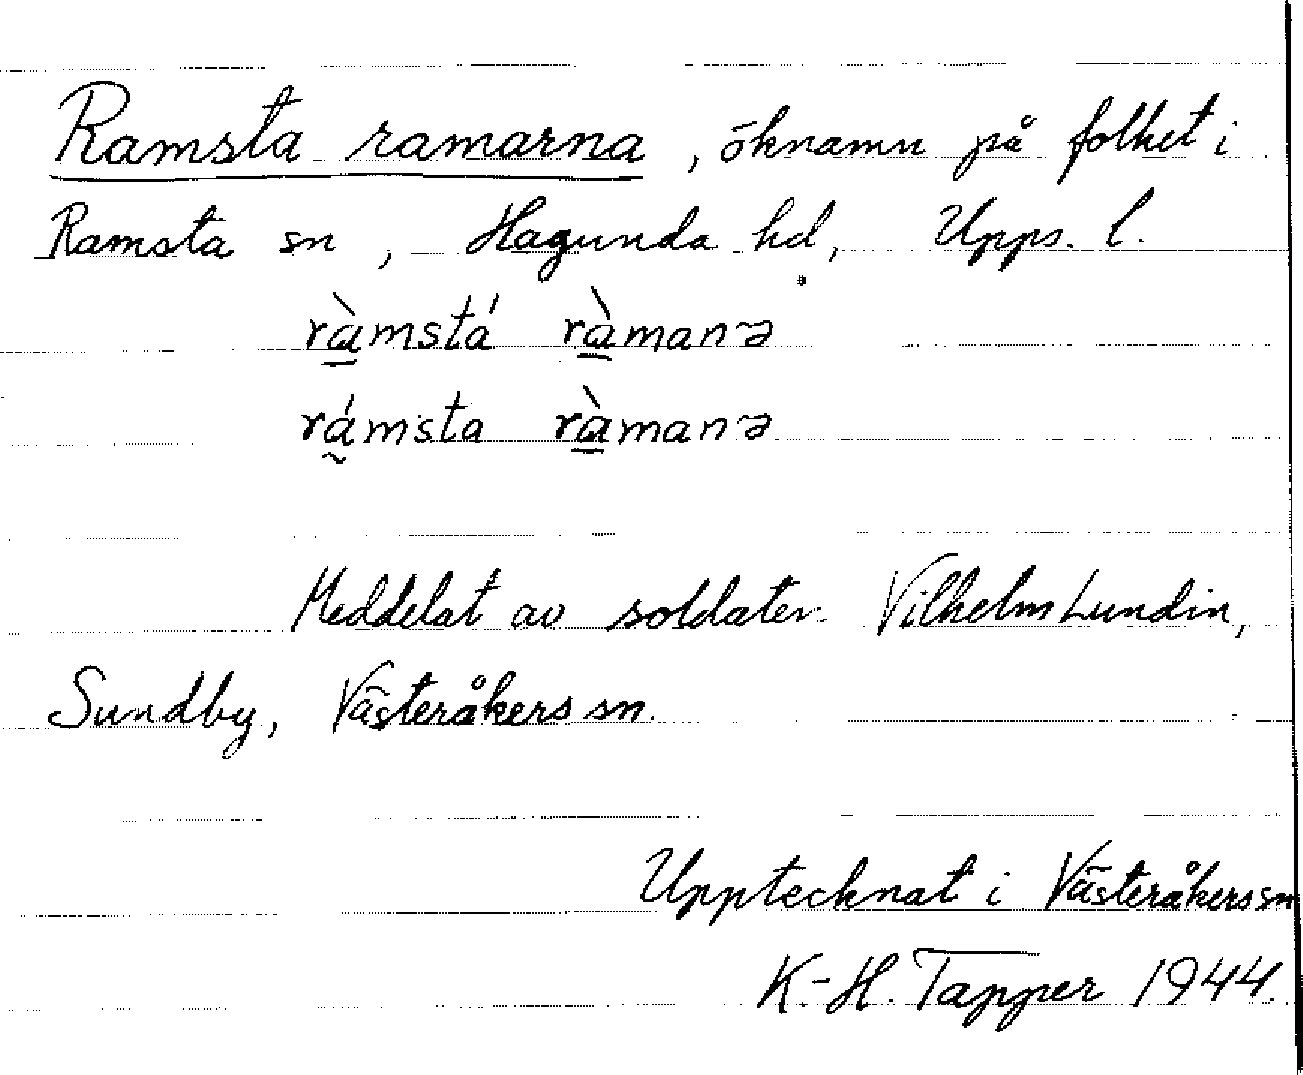 Ramsta ramarna, öknamn på folket i
Ramsta sn, Hagunda hd, Upps. l.
rà̱mstá rà̱manə
rá̰msta rà̱manə
Meddelat av soldaten Vilhelm Lundin,
Sundby, Västeråkers sn.
Upptecknat i Västeråkers sn
K.-H. Tapper 1944.